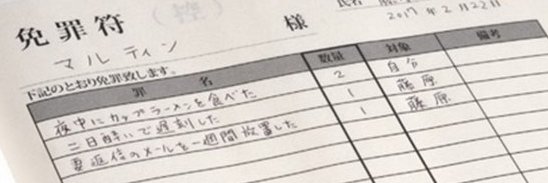 免罪符（控）
マルティン 様
2017年2月22日
下記のとおり免罪致します。
罪名 数量 対象 備考
夜中にカップラーメンを食べた 2 自分
二日酔いで遅刻した 1 藤原
要返信のメールを一週間放置した 1 藤原